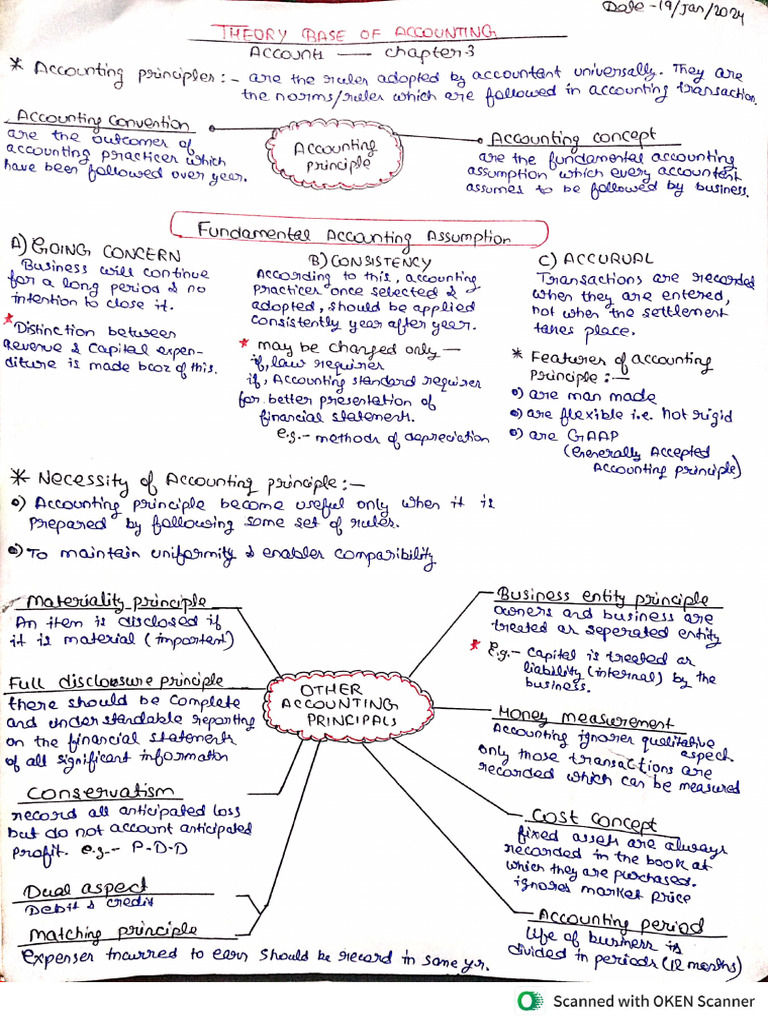 Date - 19/Jan/2024
THEORY BASE OF ACCOUNTING
ACCOUNTS —— Chapter-3
* Accounting principles :- are the rules adopted by accountant universally. They are
the norms/rules which are followed in accounting transaction.
Accounting Convention
are the outcomes of
accounting practices which
have been followed over year.
Accounting
principle
Accounting concept
are the fundamental accounting
assumption which every accountent
assumes to be followed by business.
Fundamental Accounting Assumption
A) GOING CONCERN
Business will continue
for a long period & no
intention to close it.
* Distinction between
Revenue & Capital expen-
diture is made bcoz of this.
B) CONSISTENCY
According to this, accounting
practices once selected &
adopted, should be applied
consistently year after year.
* may be changed only —
if, law requires
if, Accounting standard requires
for better presentation of
financial statement.
e.g.- methods of depreciation
C) ACCURUAL
Transactions are recorded
when they are entered,
not when the settlement
takes place.
* Features of accounting
principle :—
o) are man made
o) are flexible i.e. not rigid
o) are GAAP
(Generally Accepted
Accounting principle)
* Necessity of Accounting principle :—
o) Accounting principle become useful only when it is
prepared by following some set of rules.
o) To maintain uniformity & enables comparibility
OTHER
ACCOUNTING
PRINCIPALS
Materiality principle
An item is disclosed if
it is material (important)
Full disclosure principle
there should be complete
and understandable reporting
on the financial statements
of all significant information
Conservatism
record all anticipated loss
but do not account anticipated
profit. e.g.- P-D-D
Dual aspect
Debit & credit
Matching principle
expenses incurred to earn should be record in same yr.
Business entity principle
owners and business are
treated as seperated entity
* E.g.- Capital is treated as
liability (internal) by the
business.
Money measurement
Accounting ignores qualitative
aspect
only those transactions are
recorded which can be measured
Cost Concept
fixed assets are always
recorded in the book at
which they are purchased.
ignores market price
Accounting period
life of business is
divided in periods (12 months)
Scanned with OKEN Scanner